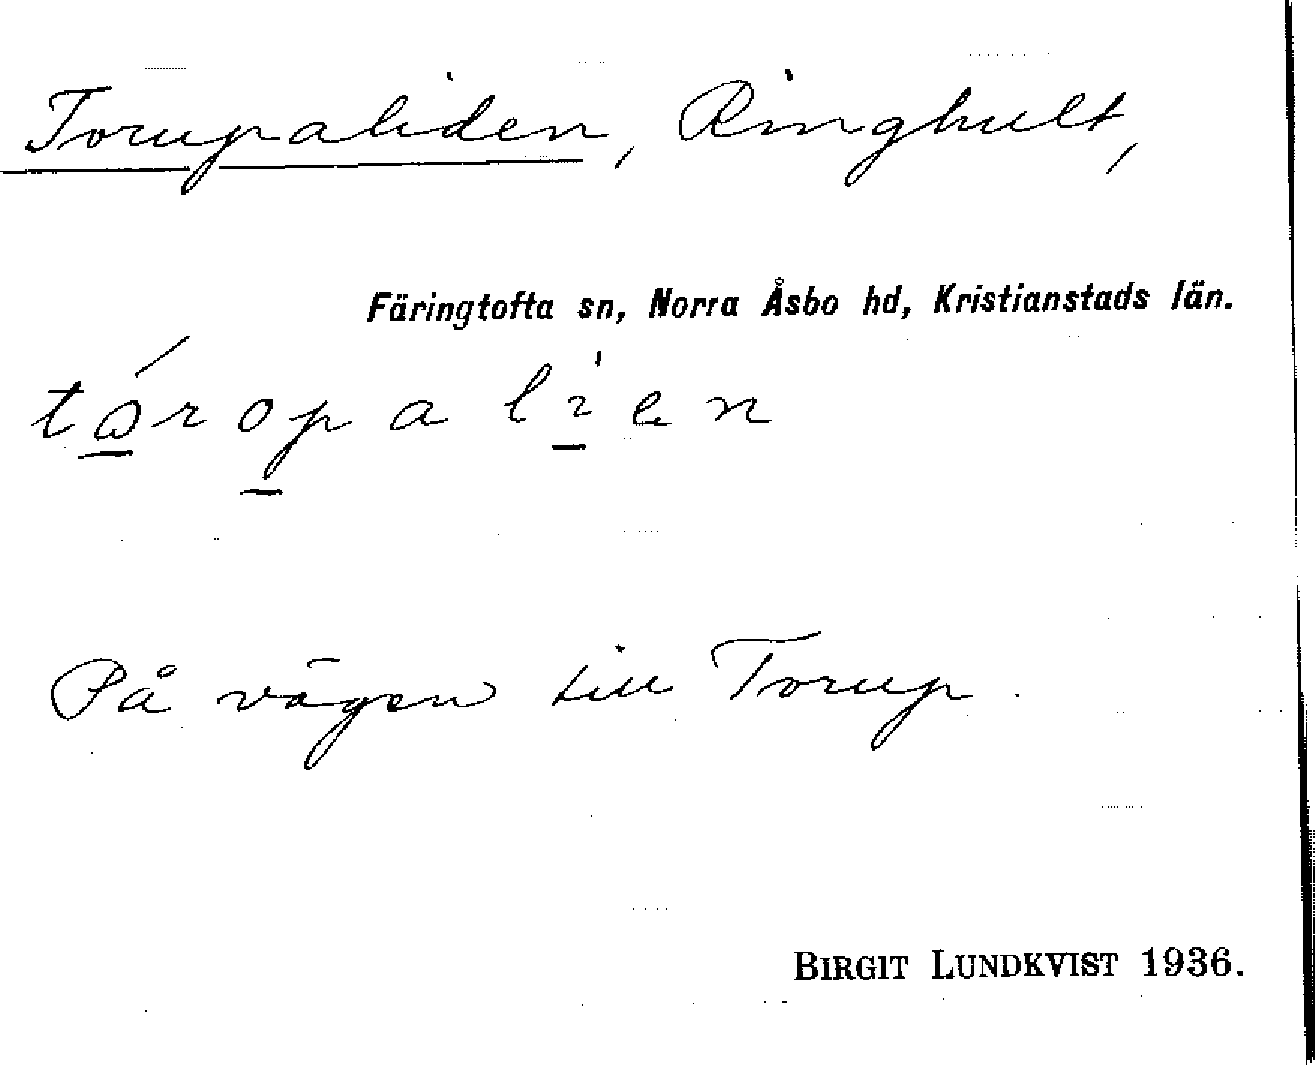 Torupaliden, Ringhult,
Färingtofta sn, Norra Åsbo hd, Kristianstads län.
På vägen till Torup.
BIRGIT LUNDKVIST 1936.